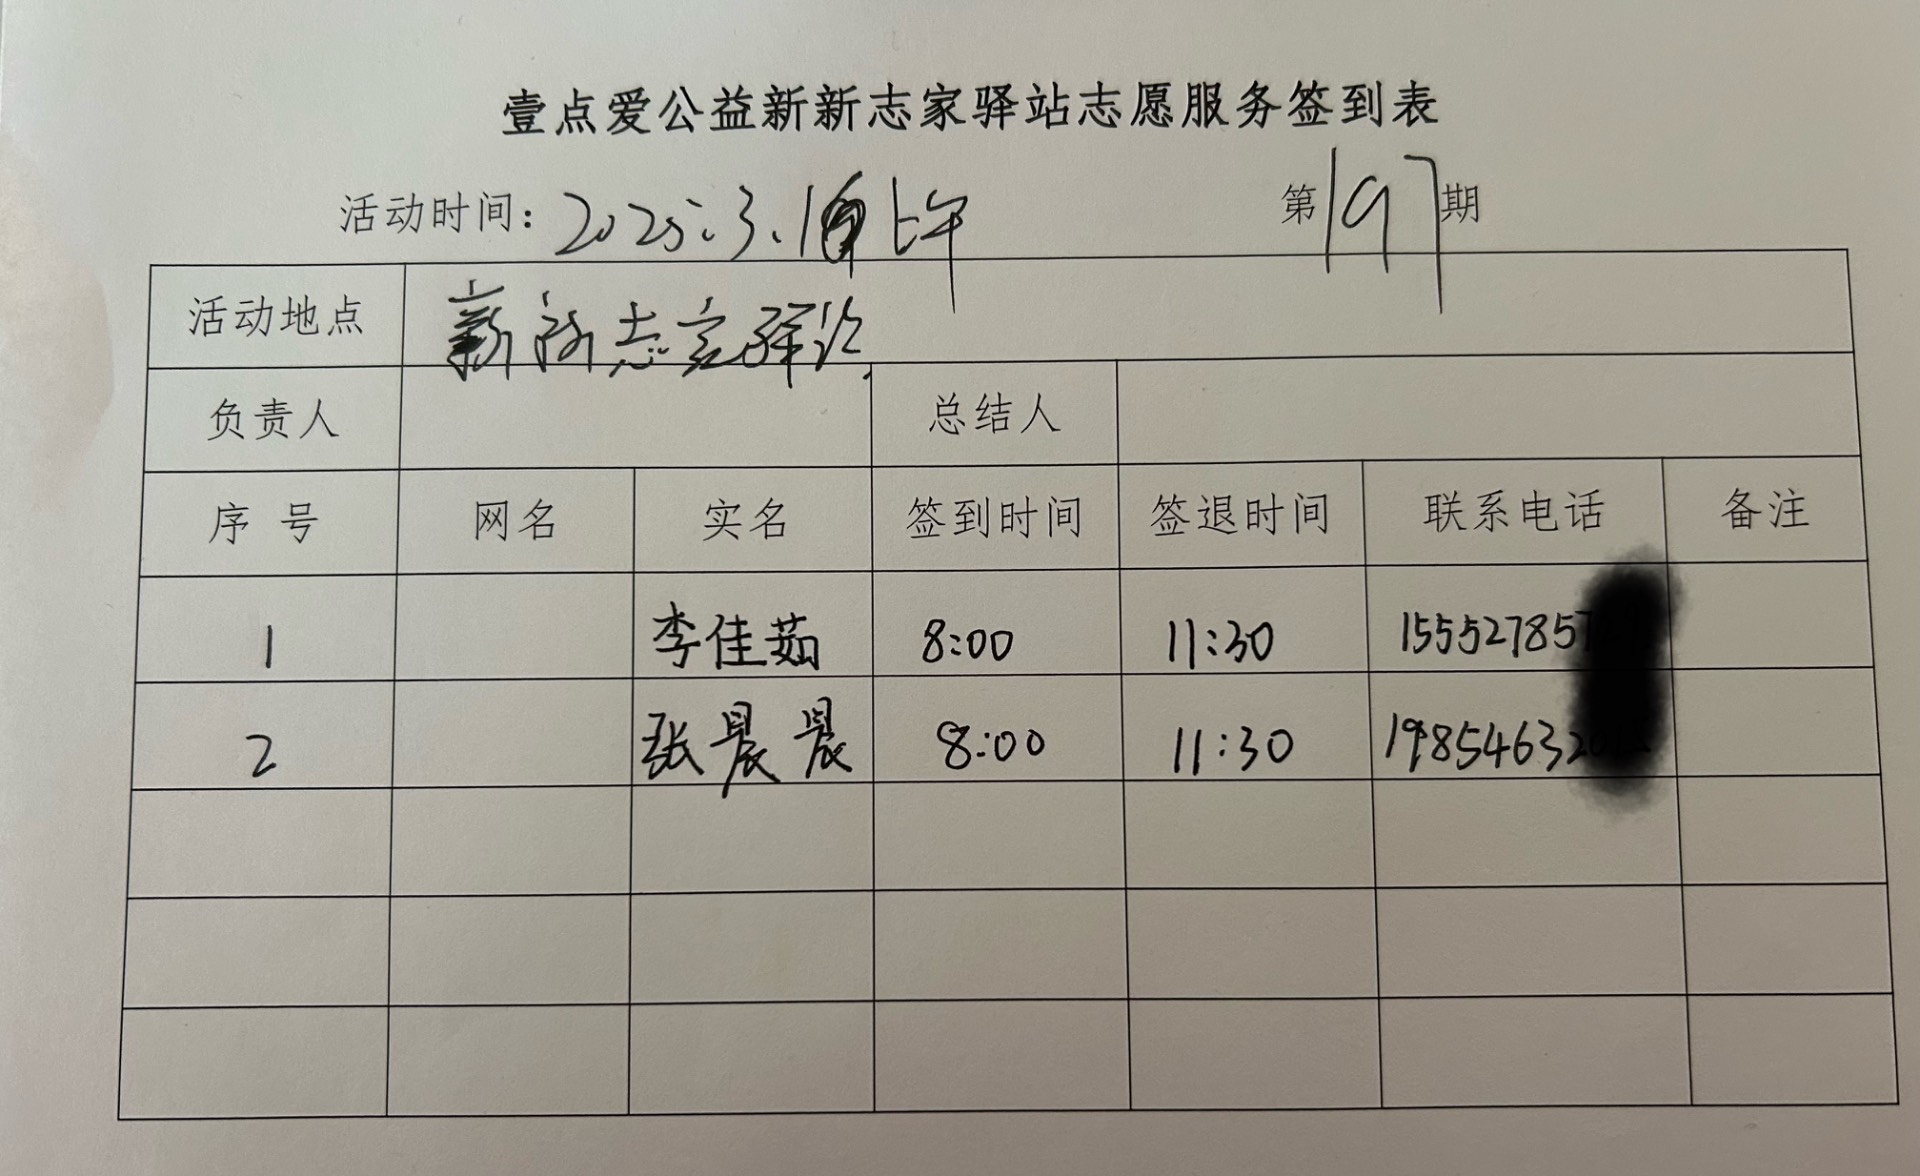 壹点爱公益新新志家驿站志愿服务签到表
活动时间：2025.3.1 上午 第197期
活动地点 新新志家驿站
负责人 总结人
序号 网名 实名 签到时间 签退时间 联系电话 备注
1 李佳茹 8:00 11:30 155527857
2 张晨晨 8:00 11:30 19854632